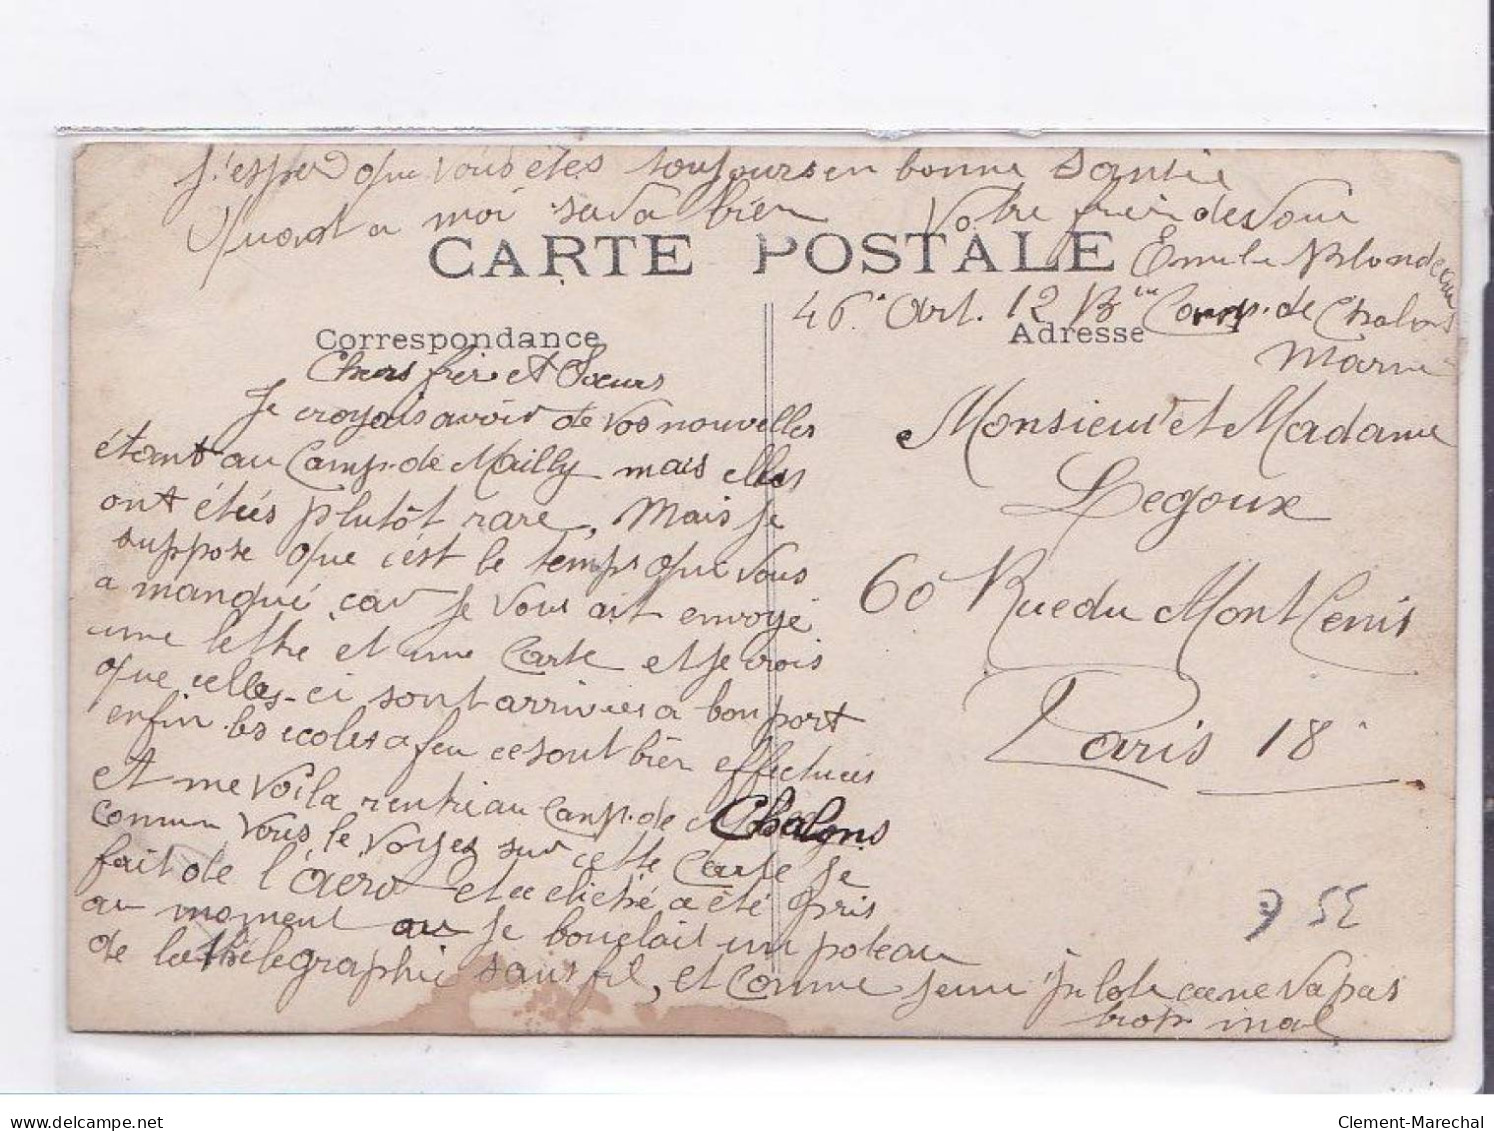 j'esper que vous êtes toujours en bonne santée
Quant a moi sava bien Votre frèr desvoué
CARTE POSTALE
Emile Blondeau
46e Art. 12 Bie Camp. de Chalons
Marne
Correspondance
Adresse
Chers frèr et Soeurs
Je croyais avoir de vos nouvelles
étant au Camp. de Mailly mais elles
ont étés plutôt rare, Mais je
suppose que c'est le temps que vous
a manqué car je vous ait envoyé
une lettre et une Carte et je crois
que celles-ci sont arrivées a bon port
enfin les écoles a feu ce sont bièn effectuées
Et me voila rentré au Camp. de Chalons
comme vous le voyez sur cette Carte je
fait de l'aéro et ce cliché a été pris
au moment au je bouclait un poteau
de la télégraphie sans fil, et comme jeune pilote ca ne va pas
trop mal
Monsieur et Madame
Legoux
60 Rue du Mont Cenis
Paris 18e
55
delcampe.net
Clement-Marechal